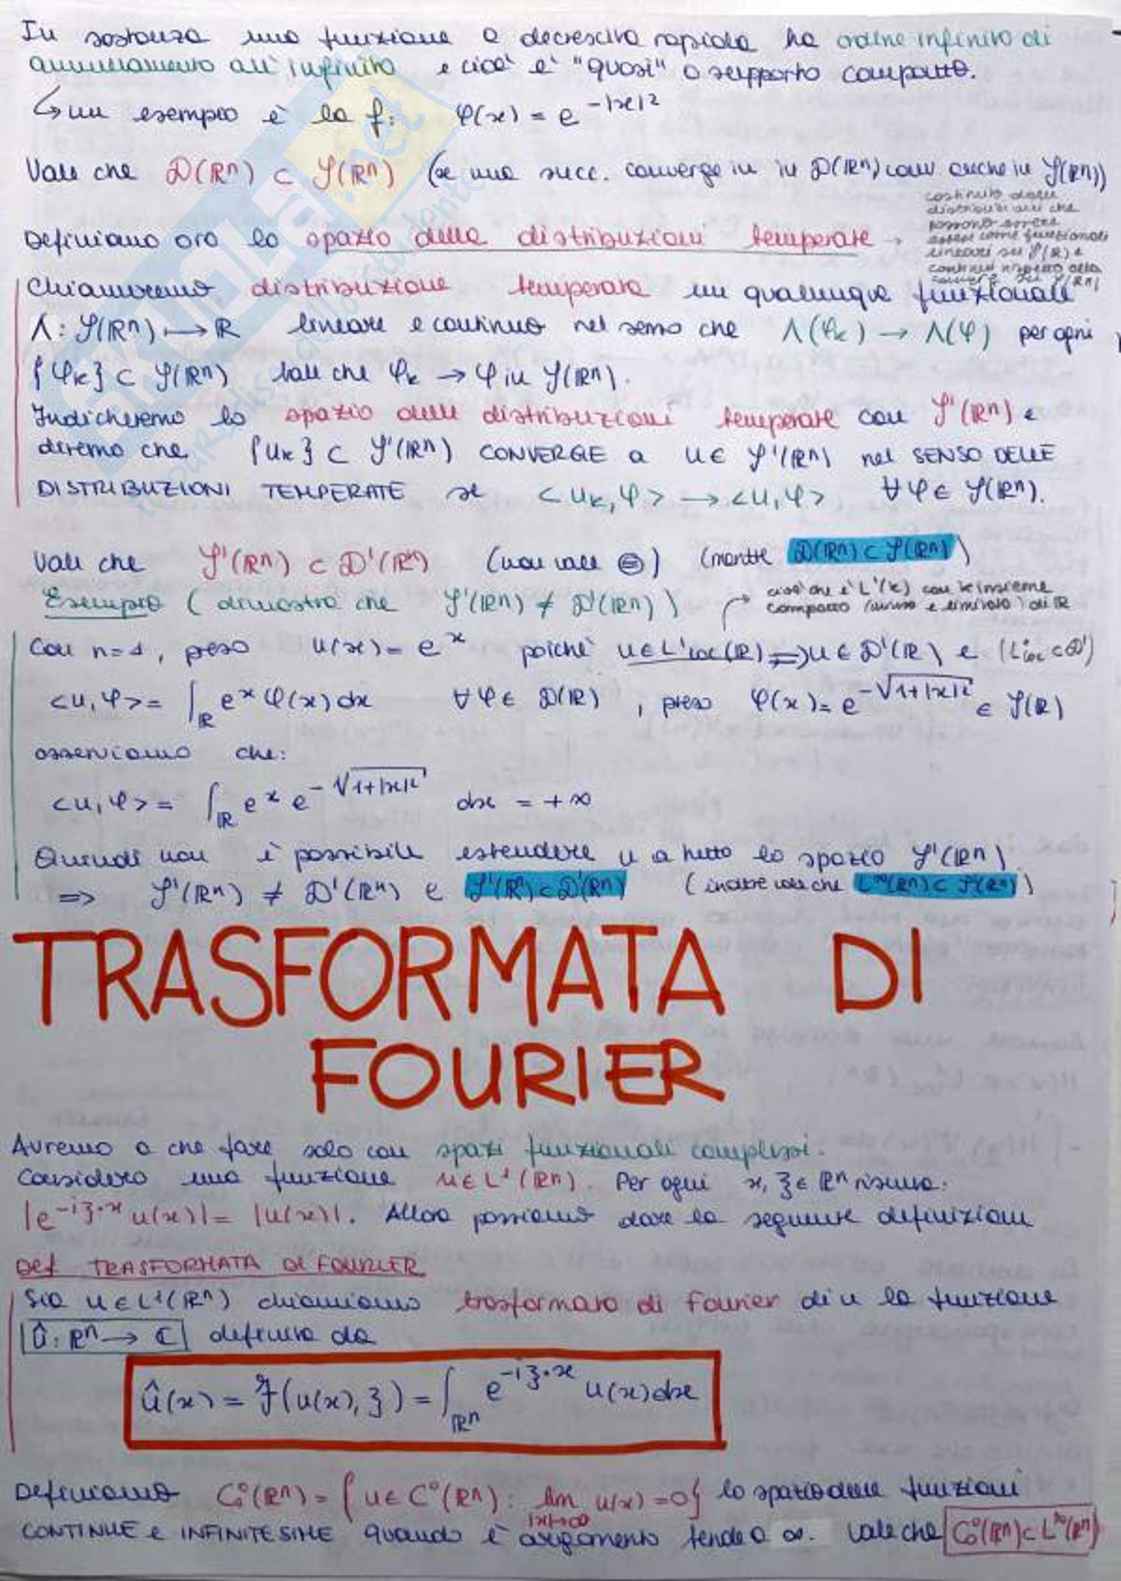 In sostanza una funzione a decrescita rapida ha ordine infinito di
annullamento all'infinito e cioè è "quasi" a supporto compatto.
↳ un esempio è la f: φ(x) = e^{-|x|²}
Vale che D(ℝⁿ) ⊂ 𝒮(ℝⁿ) (se una succ. converge in in D(ℝⁿ) conv. anche in 𝒮(ℝⁿ))
Definiamo ora lo spazio delle distribuzioni temperate →
costituito dalle
distribuzioni che
possono essere
estese come funzionali
lineari su 𝒮(ℝ) e
continui rispetto alla
converg. in 𝒮(ℝⁿ)
Chiameremo distribuzione temperata un qualunque funzionale
Λ: 𝒮(ℝⁿ) ⟼ ℝ lineare e continuo nel senso che Λ(φₖ) → Λ(φ) per ogni
{φₖ} ⊂ 𝒮(ℝⁿ) tale che φₖ → φ in 𝒮(ℝⁿ).
Indicheremo lo spazio delle distribuzioni temperate con 𝒮'(ℝⁿ) e
diremo che {uₖ} ⊂ 𝒮'(ℝⁿ) CONVERGE a u ∈ 𝒮'(ℝⁿ) nel SENSO DELLE
DISTRIBUZIONI TEMPERATE se <uₖ, φ> → <u, φ> ∀φ ∈ 𝒮(ℝⁿ).
Vale che 𝒮'(ℝⁿ) ⊂ D'(ℝⁿ) (non vale ⊜) (mentre D(ℝⁿ) ⊂ 𝒮(ℝⁿ))
Esempio (dimostra che 𝒮'(ℝⁿ) ≠ D'(ℝⁿ))
cioè che è L¹(K) con K insieme
compatto (chiuso e limitato) di ℝ
Con n=1, preso u(x) = eˣ poiché u ∈ L¹loc(ℝ) ⟹ u ∈ D'(ℝ) e (L¹loc ⊂ D')
<u, φ> = ∫_ℝ eˣ φ(x) dx ∀φ ∈ D(ℝ), preso φ(x) = e^{-√(1+|x|²)} ∈ 𝒮(ℝ)
osserviamo che:
<u, φ> = ∫_ℝ eˣ e^{-√(1+|x|²)} dx = +∞
Quindi non è possibile estendere u a tutto lo spazio 𝒮'(ℝⁿ)
⟹ 𝒮'(ℝⁿ) ≠ D'(ℝⁿ) e 𝒮'(ℝⁿ) ⊂ D'(ℝⁿ) (inoltre vale che L^∞(ℝⁿ) ⊂ 𝒮'(ℝⁿ))
TRASFORMATA DI
FOURIER
Avremo a che fare solo con spazi funzionali complessi.
Considero una funzione u ∈ L¹(ℝⁿ). Per ogni x, ξ ∈ ℝⁿ risulta:
|e^{-iξ·x} u(x)| = |u(x)|. Allora possiamo dare la seguente definizione
Def TRASFORMATA DI FOURIER
Sia u ∈ L¹(ℝⁿ) chiamiamo trasformata di Fourier di u la funzione
û: ℝⁿ → ℂ definita da
û(x) = ℱ(u(x), ξ) = ∫_ℝⁿ e^{-iξ·x} u(x) dx
Definiamo C₀⁰(ℝⁿ) = {u ∈ C⁰(ℝⁿ): lim_{|x|→∞} u(x) = 0} lo spazio delle funzioni
CONTINUE e INFINITESIME quando è argomento tende a ∞. Vale che C₀⁰(ℝⁿ) ⊂ L^∞(ℝⁿ)